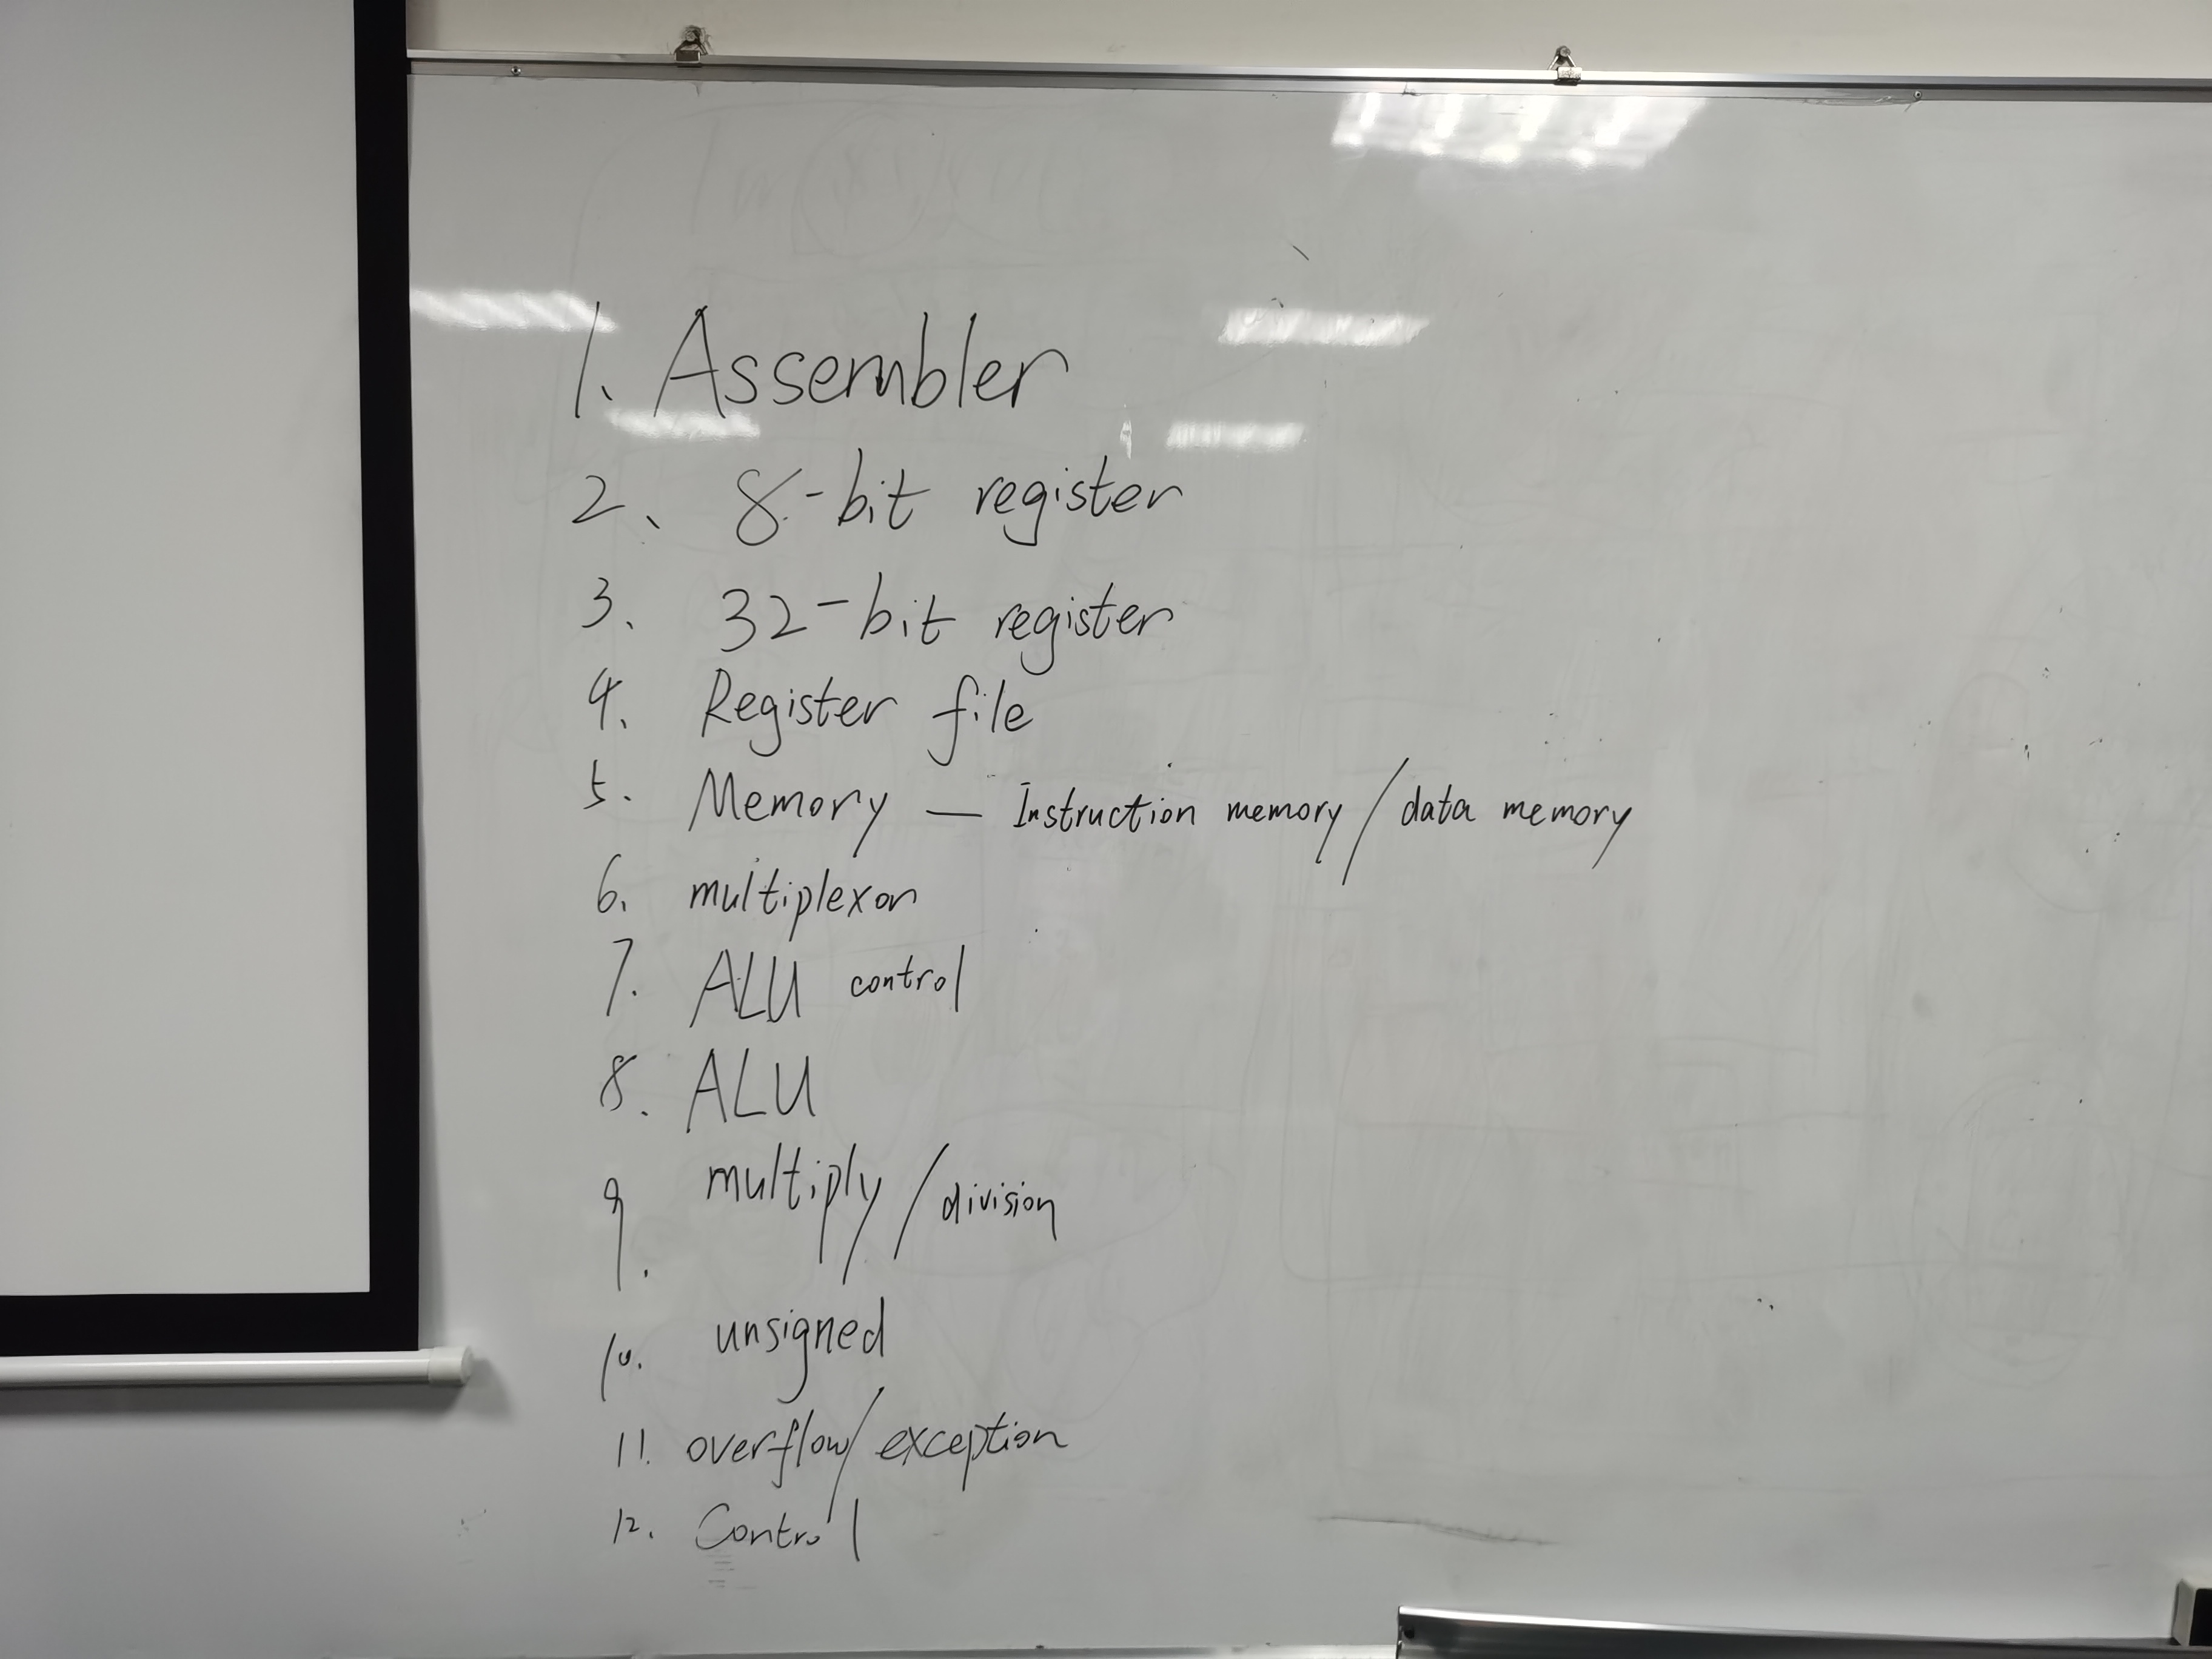 1. Assembler
2、 8-bit register
3. 32-bit register
4. Register file
5. Memory — Instruction memory / data memory
6. multiplexor
7. ALU control
8. ALU
9. multiply / division
10. unsigned
11. overflow / exception
12. Control